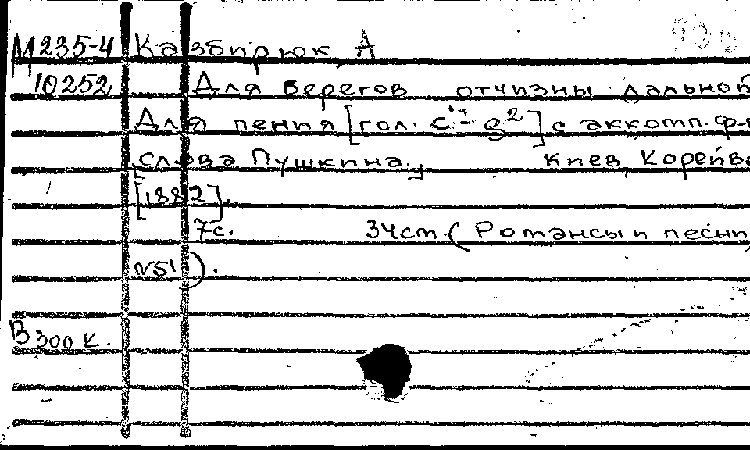 М 235-4 Казбирюк, А
10252 Для берегов отчизны дальной
Для пения [гол. c¹- g²] с аккомп. ф-п
слова Пушкина. Киев, Корейво
[1882].
7с. 34см. (Романсы и песни
№51).
В 300 к.